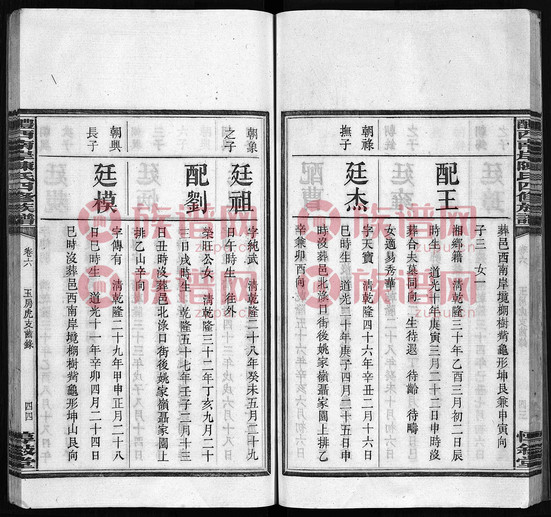 葬邑西南岸境棚樹嵴龜形坤艮兼申寅向
子三　女一
配王
湘鄉籍　清乾隆三十年乙酉三月初二日辰
時生　道光十年庚寅三月二十二日申時沒
葬合夫墓同向　生待選　待齡　待疇
女適易秀華
朝祿
撫子
廷杰
字天寶　清乾隆四十六年辛丑二月十六日
巳時生　道光二十年庚子四月二十五日申
時沒葬邑北淥口街後姚家嶺聶家園上排乙
辛兼卯酉向
朝象
之子
廷祖
字純武　清乾隆二十八年癸未五月二十九
日午時生　往外
配劉
榮旺公女　清乾隆三十二年丁亥九月二十
二日戌時生　乾隆五十七年壬子二月十三
日丑時沒葬邑北淥口街後姚家嶺聶家園上
排乙山辛向
朝興
長子
廷模
字傳有　清乾隆二十九年甲申正月二十八
日巳時生　道光十一年辛卯四月二十四日
巳時沒葬邑西南岸境棚樹嵴龜形坤山艮向
醴西南岸陳氏四修族譜
卷十六
玉房虎支齒錄
四四
惇敘堂
族谱网